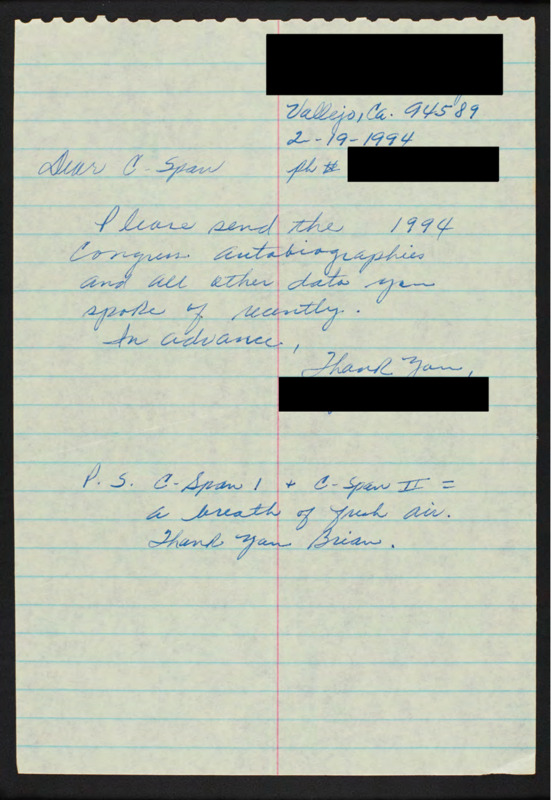 Vallejo, Ca. 94589
2-19-1994
Dear C-Span
ph #
Please send the 1994
Congress autobiographies
and all other data you
spoke of recently.
In advance,
Thank You,
P. S. C-Span 1 + C-Span II =
a breath of fresh air.
Thank You Brian.